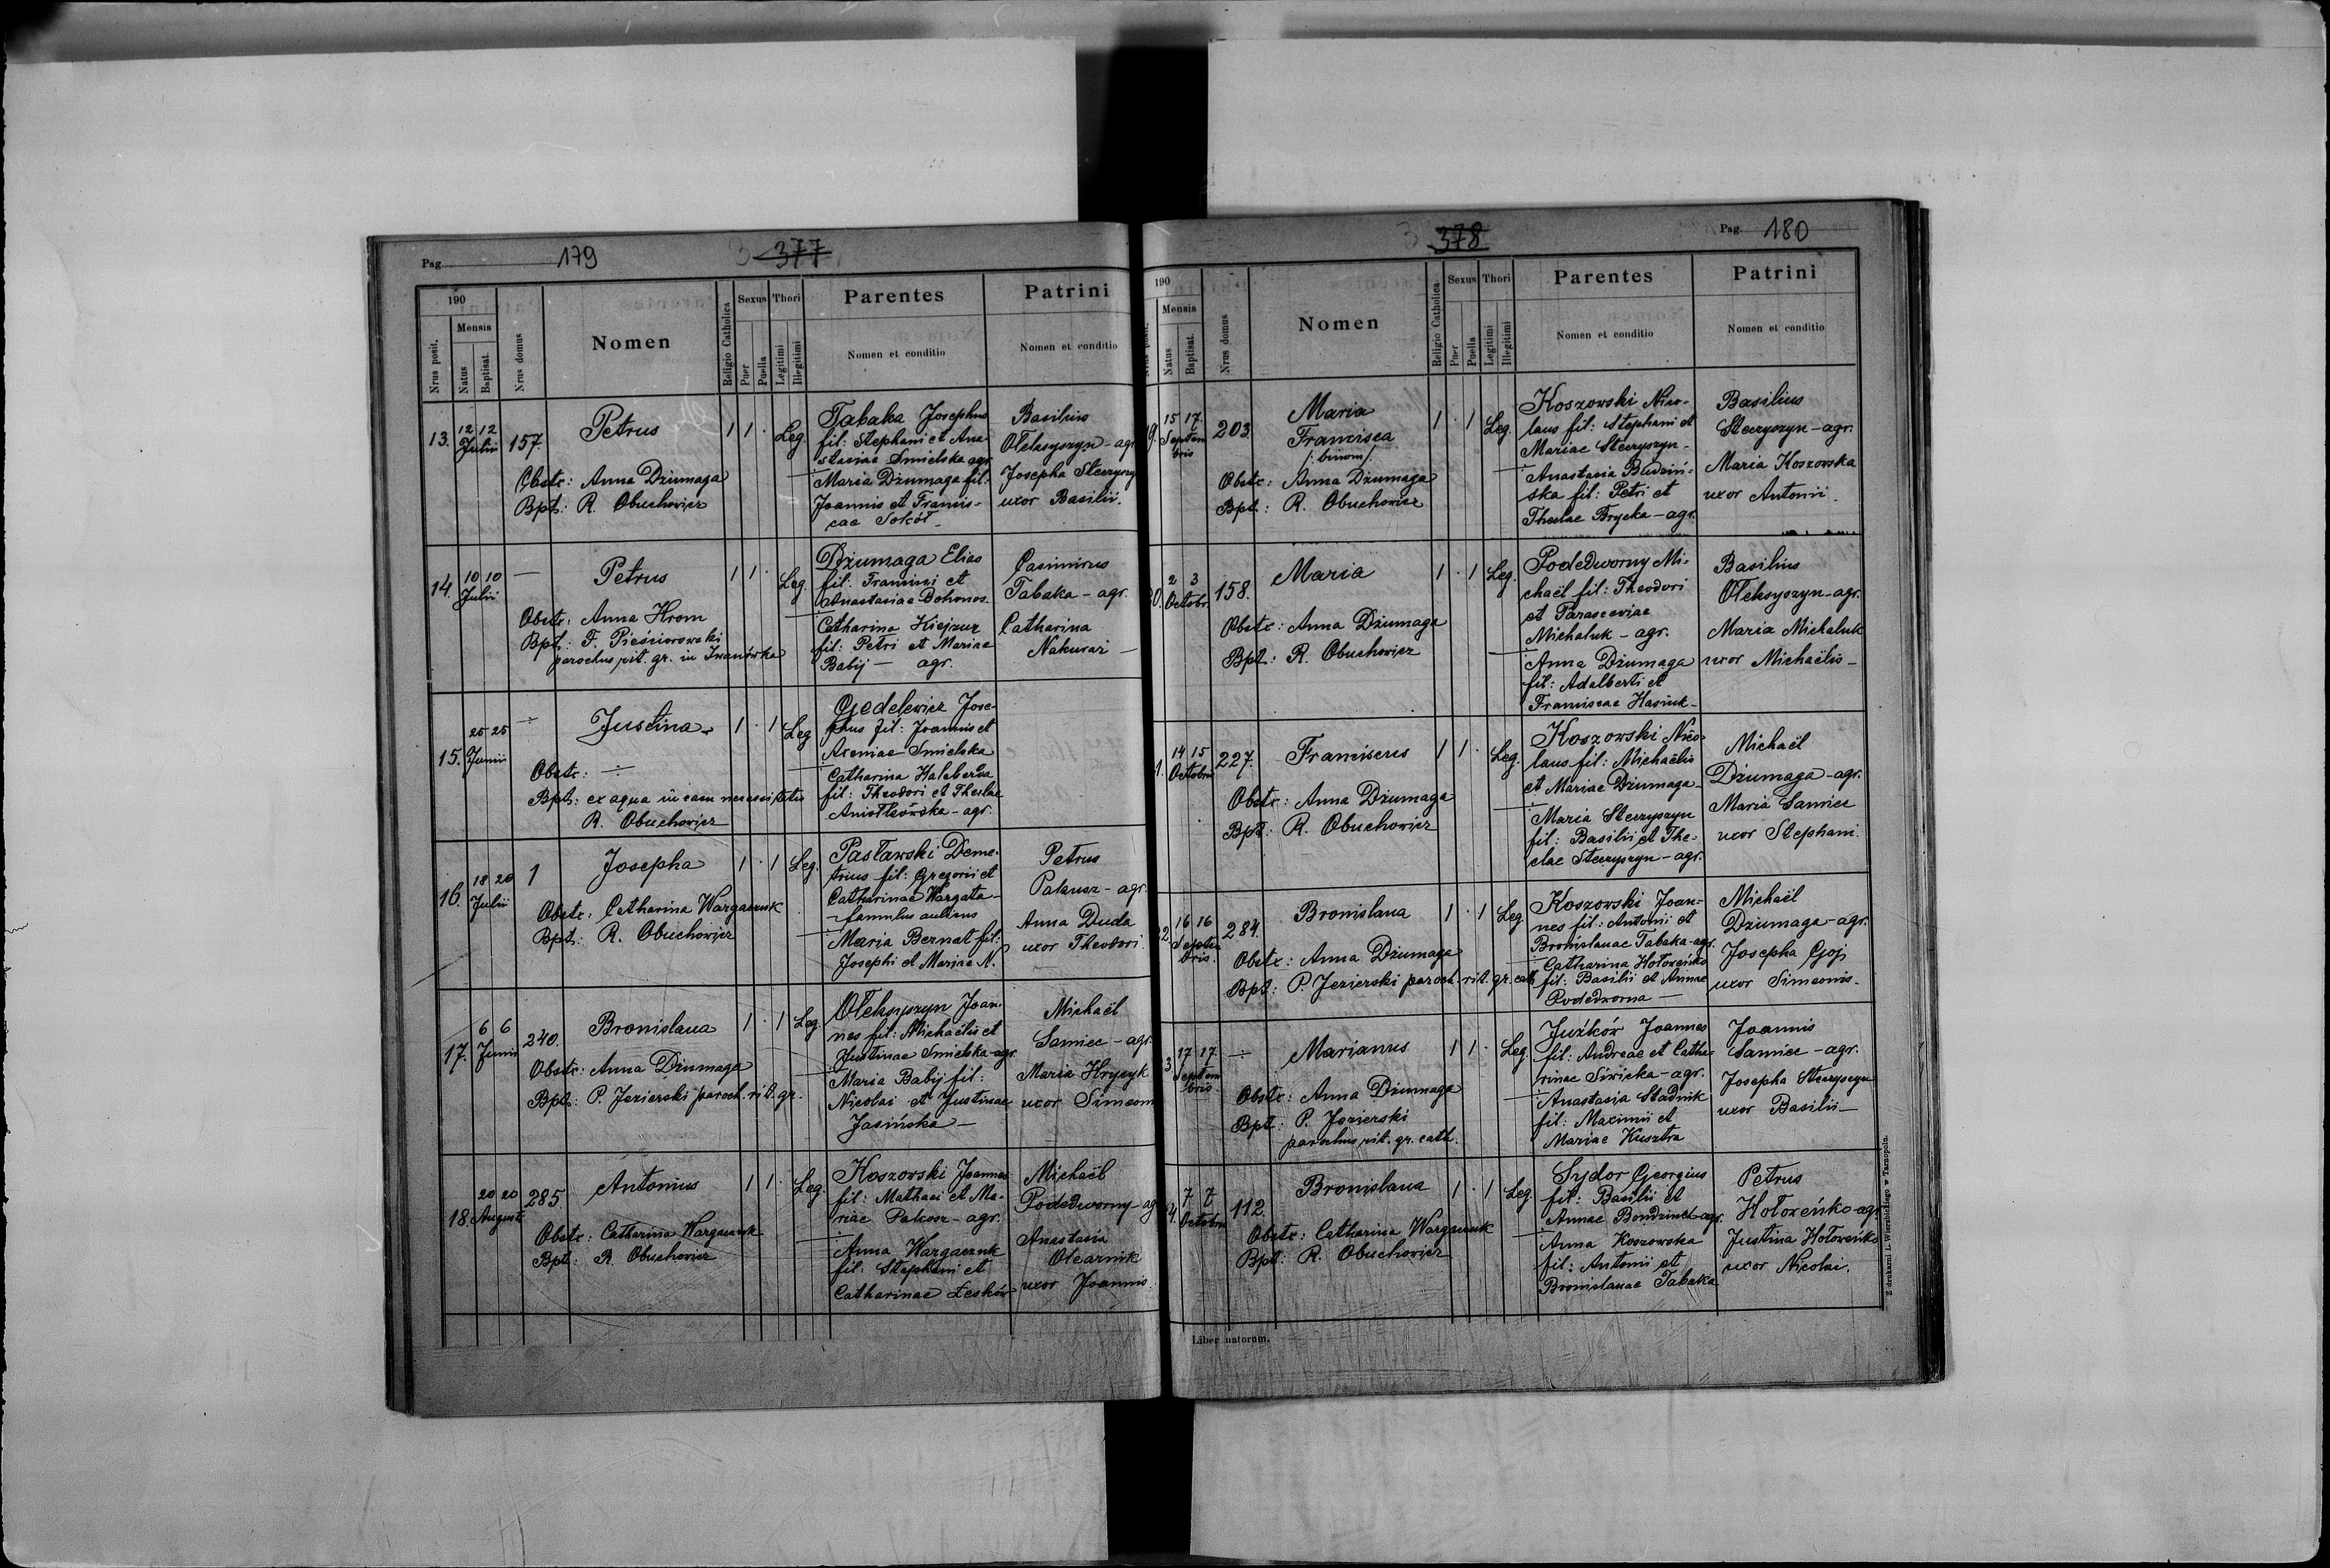 Pag. 179 3 377
190
Nrus posit.
Mensis
Natus
Baptisat.
Nrus domus
Nomen
Religio Catholica
Sexus
Puer
Puella
Thori
Legitimi
Illegitimi
Parentes
Nomen et conditio
Patrini
Nomen et conditio
13. 12 12 Julii 157.
Petrus 1 1 · Leg.
Obstr: Anna Dżumaga
Bpt: R. Obuchowicz
Tabaka Josephus
fil: Stephani et Ana-
stasiae Smielska agr.
Maria Dżumaga fil:
Joannis et Francis-
cae Sokół -
Basilius
Ołeksyszyn - agr
Josepha Steczyszy
uxor Basilii.
14. 10 10 Julii —
Petrus 1 1 · Leg.
Obstr: Anna Hrom
Bpt: F. Pieściorowski
parochus rit. gr. in Iwanówka
Dżumaga Elias
fil: Francisci et
Anastasiae Dohonos.
Catharina Kiejzur
fil: Petri et Mariae
Babij — agr.
Casimirus
Tabaka - agr.
Catharina
Nakurai —
15. 25 25 Junii ÷
Justina 1 · 1 Leg
Obstr: ÷
Bpt: ex aqua in casu necessitatis
R. Obuchowicz
Gedelewicz Jose-
phus fil: Joannis et
Axeniae Smielska
Catharina Halaberda
fil: Theodori et Theclae
Aniołkowska - agr.
16. 18 20 Julii 1
Josepha 1 · 1 Leg.
Obstr: Catharina Wargaczuk
Bpt: R. Obuchowicz
Pasławski Deme-
trius fil: Gregorii et
Catharinae Wargata -
- famulus aulicus
Maria Bernat fil:
Josephi et Mariae N.
Petrus
Palausz - agr.
Anna Duda
uxor Theodori
17. 6 6 Junii 240.
Bronislaua 1 · 1 Leg.
Obstr: Anna Dżumaga
Bpt: P. Jezierski paroch. rit. gr.
Ołeksyszyn Joan-
nes fil: Michaëlis et
Justinae Smielska-agr
Maria Babij fil:
Nicolai et Justinae
Jasińska —
Michaël
Samiec - agr.
Maria Hrycyk
uxor Simeoni
18. 20 20 Augusti 285.
Antonius 1 1 · Leg.
Obstr: Catharina Wargaczuk
Bpt: R. Obuchowicz
Koszowski Joannes
fil: Mathaei et Ma-
riae Pakosz - agr.
Anna Wargaczuk
fil: Stephani et
Catharinae Łeśków
Michaël
Podedworny - ag
Anastasia
Olearnik
uxor Joannis.
3 378 Pag. 180
190
Mensis
Natus
Baptisat.
Nrus domus
Nomen
Religio Catholica
Sexus
Puer
Puella
Thori
Legitimi
Illegitimi
Parentes
Nomen et conditio
Patrini
Nomen et conditio
9. 15 17 Septembris 203.
Maria
Francisca
/: binom/.
1 · 1 Leg.
Obstr: Anna Dżumaga
Bpt: R. Obuchowicz
Koszowski Nico-
laus fil: Stephani et
Mariae Steczyszyn -
Anastasia Budziń-
ska fil: Petri et
Theclae Brycka - agr.
Basilius
Steczyszyn - agr.
Maria Koszowska
uxor Antonii.
0. 2 3 Octobr. 158.
Maria 1 · 1 Leg.
Obstr: Anna Dżumaga
Bpt: R. Obuchowicz
Podedworny Mi-
chaël fil: Theodori
et Parasceviae
Michaluk - agr.
Anna Dżumaga
fil: Adalberti et
Franciscae Hasiuk -
Basilius
Ołeksyszyn - agr.
Maria Michaluk
uxor Michaëlis -
1. 14 15 Octobris 227.
Franciscus 1 1 · Leg.
Obstr: Anna Dżumaga
Bpt: R. Obuchowicz
Koszowski Nico-
laus fil: Michaëlis
et Mariae Dżumaga -
Maria Steczyszyn
fil: Basilii et The-
clae Steczyszyn - agr.
Michaël
Dżumaga - agr.
Maria Samiec
uxor Stephani.
2. 16 16 Septembris. 284.
Bronislaua 1 · 1 Leg
Obstr: Anna Dżumaga
Bpt: P. Jezierski paroch. rit. gr. cath
Koszowski Joan-
nes fil: Antonii et
Bronislauae Tabaka-agr.
Catharina Hołoweńko
fil: Basilii et Annae
Podedworna —
Michaël
Dżumaga - agr.
Josepha Goj
uxor Simeonis.
3. 17 17 Septembris ÷
Marianus 1 1 · Leg.
Obstr: Anna Dżumaga
Bpt: P. Jezierski
parochus rit. gr. cath.
Juźków Joannes
fil: Andreae et Catha-
rinae Siwicka - agr.
Anastasia Stadnik
fil: Maximi et
Mariae Kusztra
Joannis
Samiec - agr.
Josepha Steczyszyn
uxor Basilii -
4. 7 7 Octobris 112.
Bronislaua 1 · 1 Leg.
Obstr: Catharina Wargaczuk
Bpt: R. Obuchowicz
Sydor Georgius
fil: Basilii et
Annae Bondzinet-agr.
Anna Koszowska
fil: Antonii et
Bronislauae Tabaka
Petrus
Hołoweńko-agr
Justina Hołoweńko
uxor Nicolai.
Liber natorum.
Z drukarni L. Wierzbickiego w Tarnopolu.